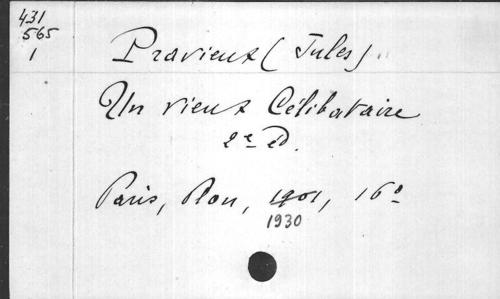 431
565
1
Pravieux (Jules).
Un vieux Célibataire
2e éd.
Paris, Plon, 1901, 16o
1930